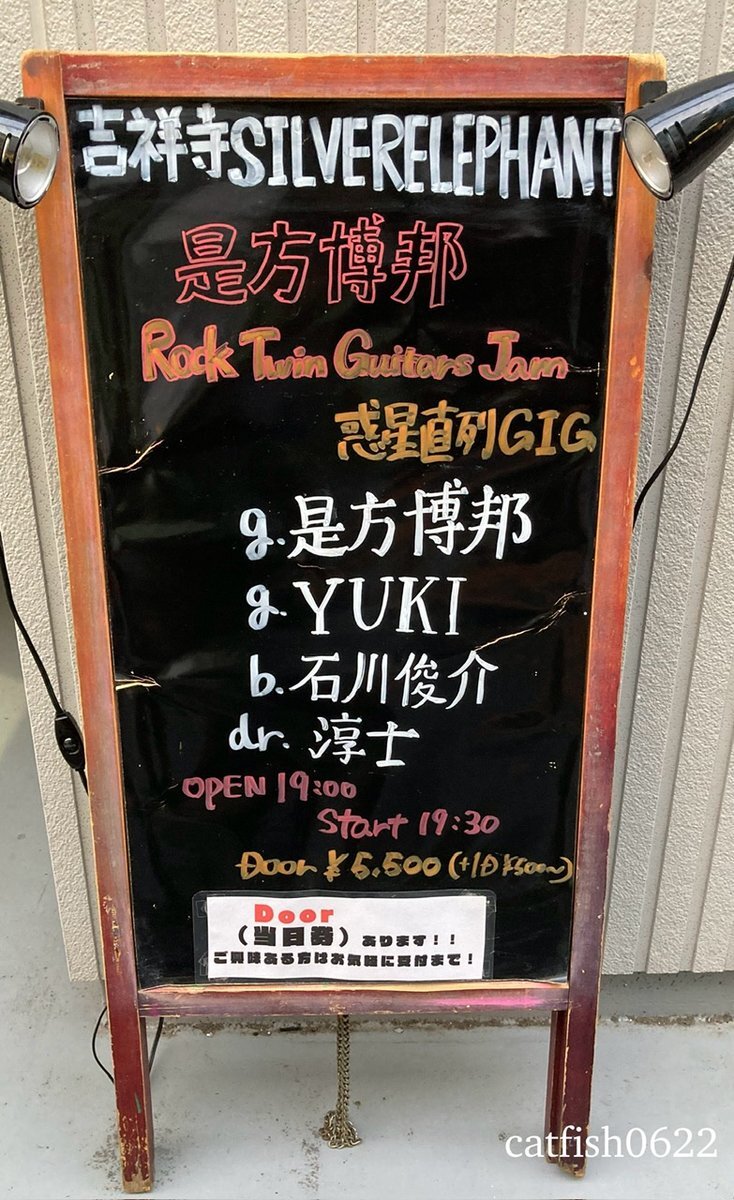 吉祥寺SILVERELEPHANT
是方博邦
Rock Twin Guitars Jam
惑星直列GIG
g.是方博邦
g.YUKI
b.石川俊介
dr.淳士
OPEN 19:00
Start 19:30
Door ¥5,500(+1D¥500~)
Door
(当日券)あります!!
ご興味ある方はお気軽に受付まで!
catfish0622